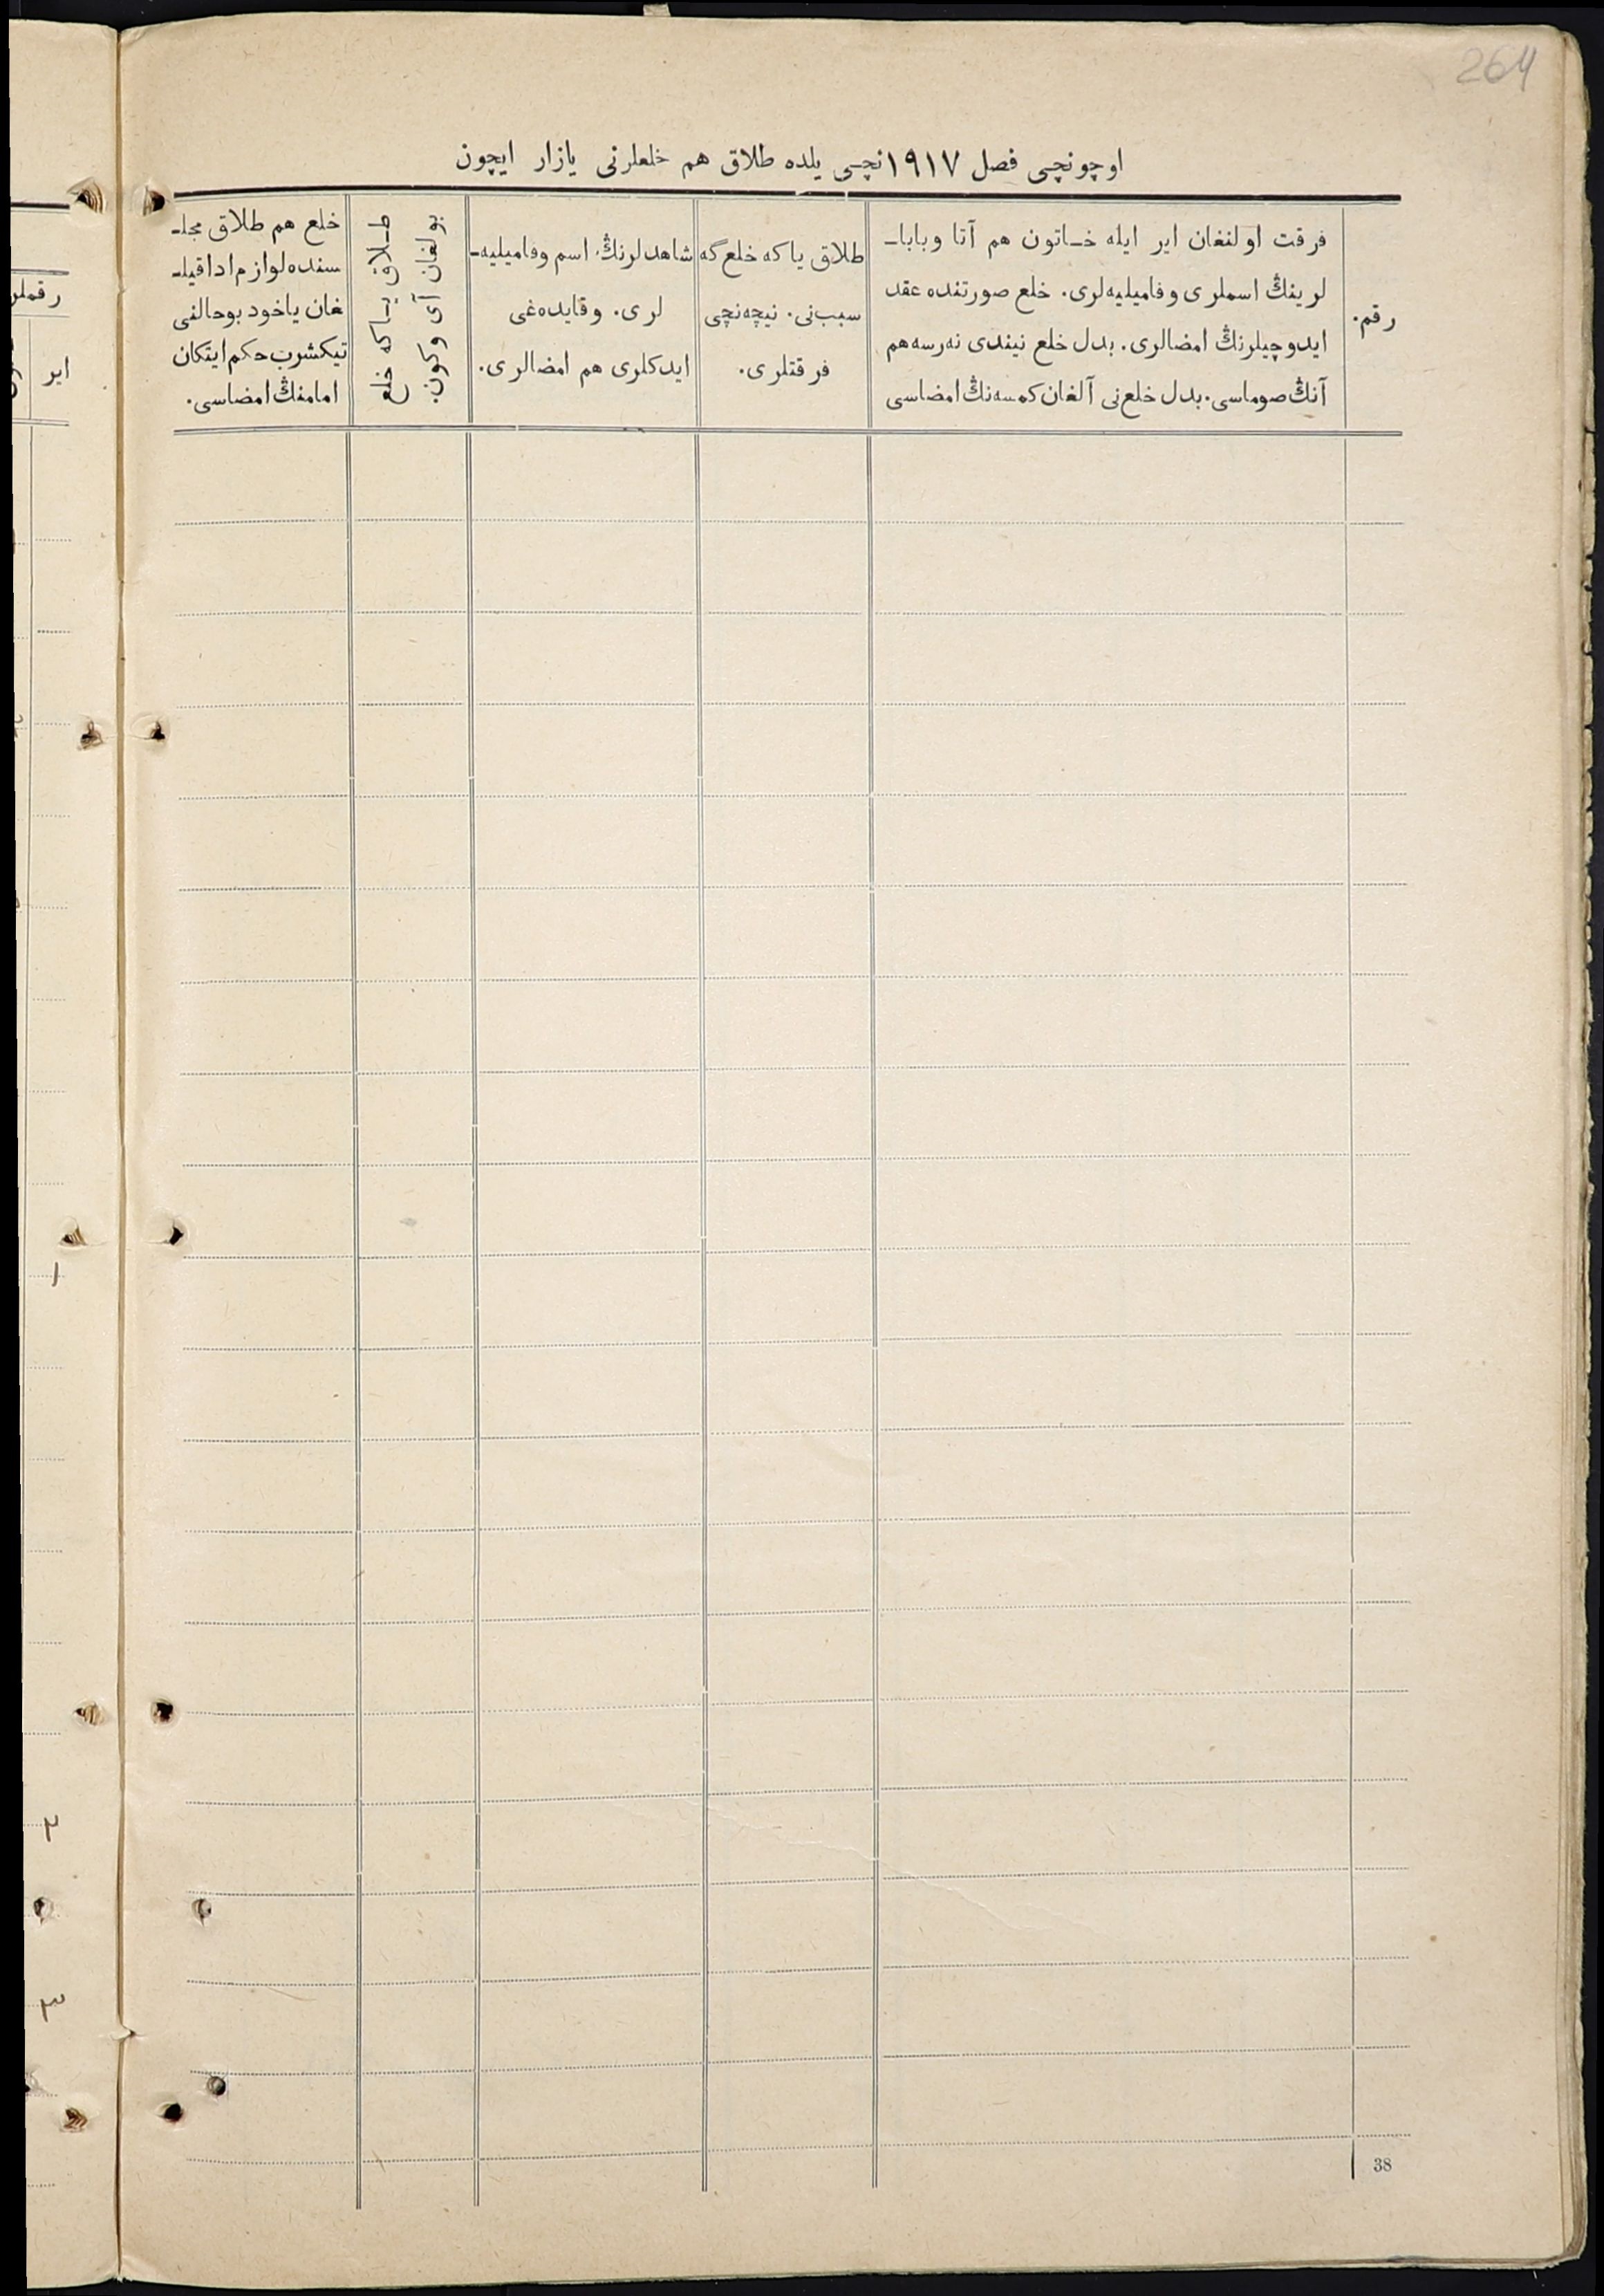 264
اوچونچی فصل ١٩١٧نچی یلده طلاق هم خلعلرنی یازار ایچون
رقم.
فرقت اولنغان ایر ایله خـاتون هم آتا وبابا-
لرینڭ اسملری وفامیلیه‌لری. خلع صورتنده عقد
ایدوچیلرنڭ امضالری. بدل خلع نیندی نه‌رسه هم
آنڭ صوماسی. بدل خلع‌نی آلغان کمسه‌نڭ امضاسی
طلاق یاکه خلع‌گه
سبب‌نی. نیچه‌نچی
فرقتلری.
شاهدلرنڭ اسم وفامیلیه-
لری. وقایده‌غی
ایدکلری هم امضالری.
طـلاق یـاکه خلع
بولغان آی وکون.
خلع هم طلاق مجلـ
سنده لوازم ادا قیلـ
غان یاخود بوحالنی
تیکشرب حکم ایتکان
امامنڭ امضاسی.
رقملر
ایر
١
٢
٣
38